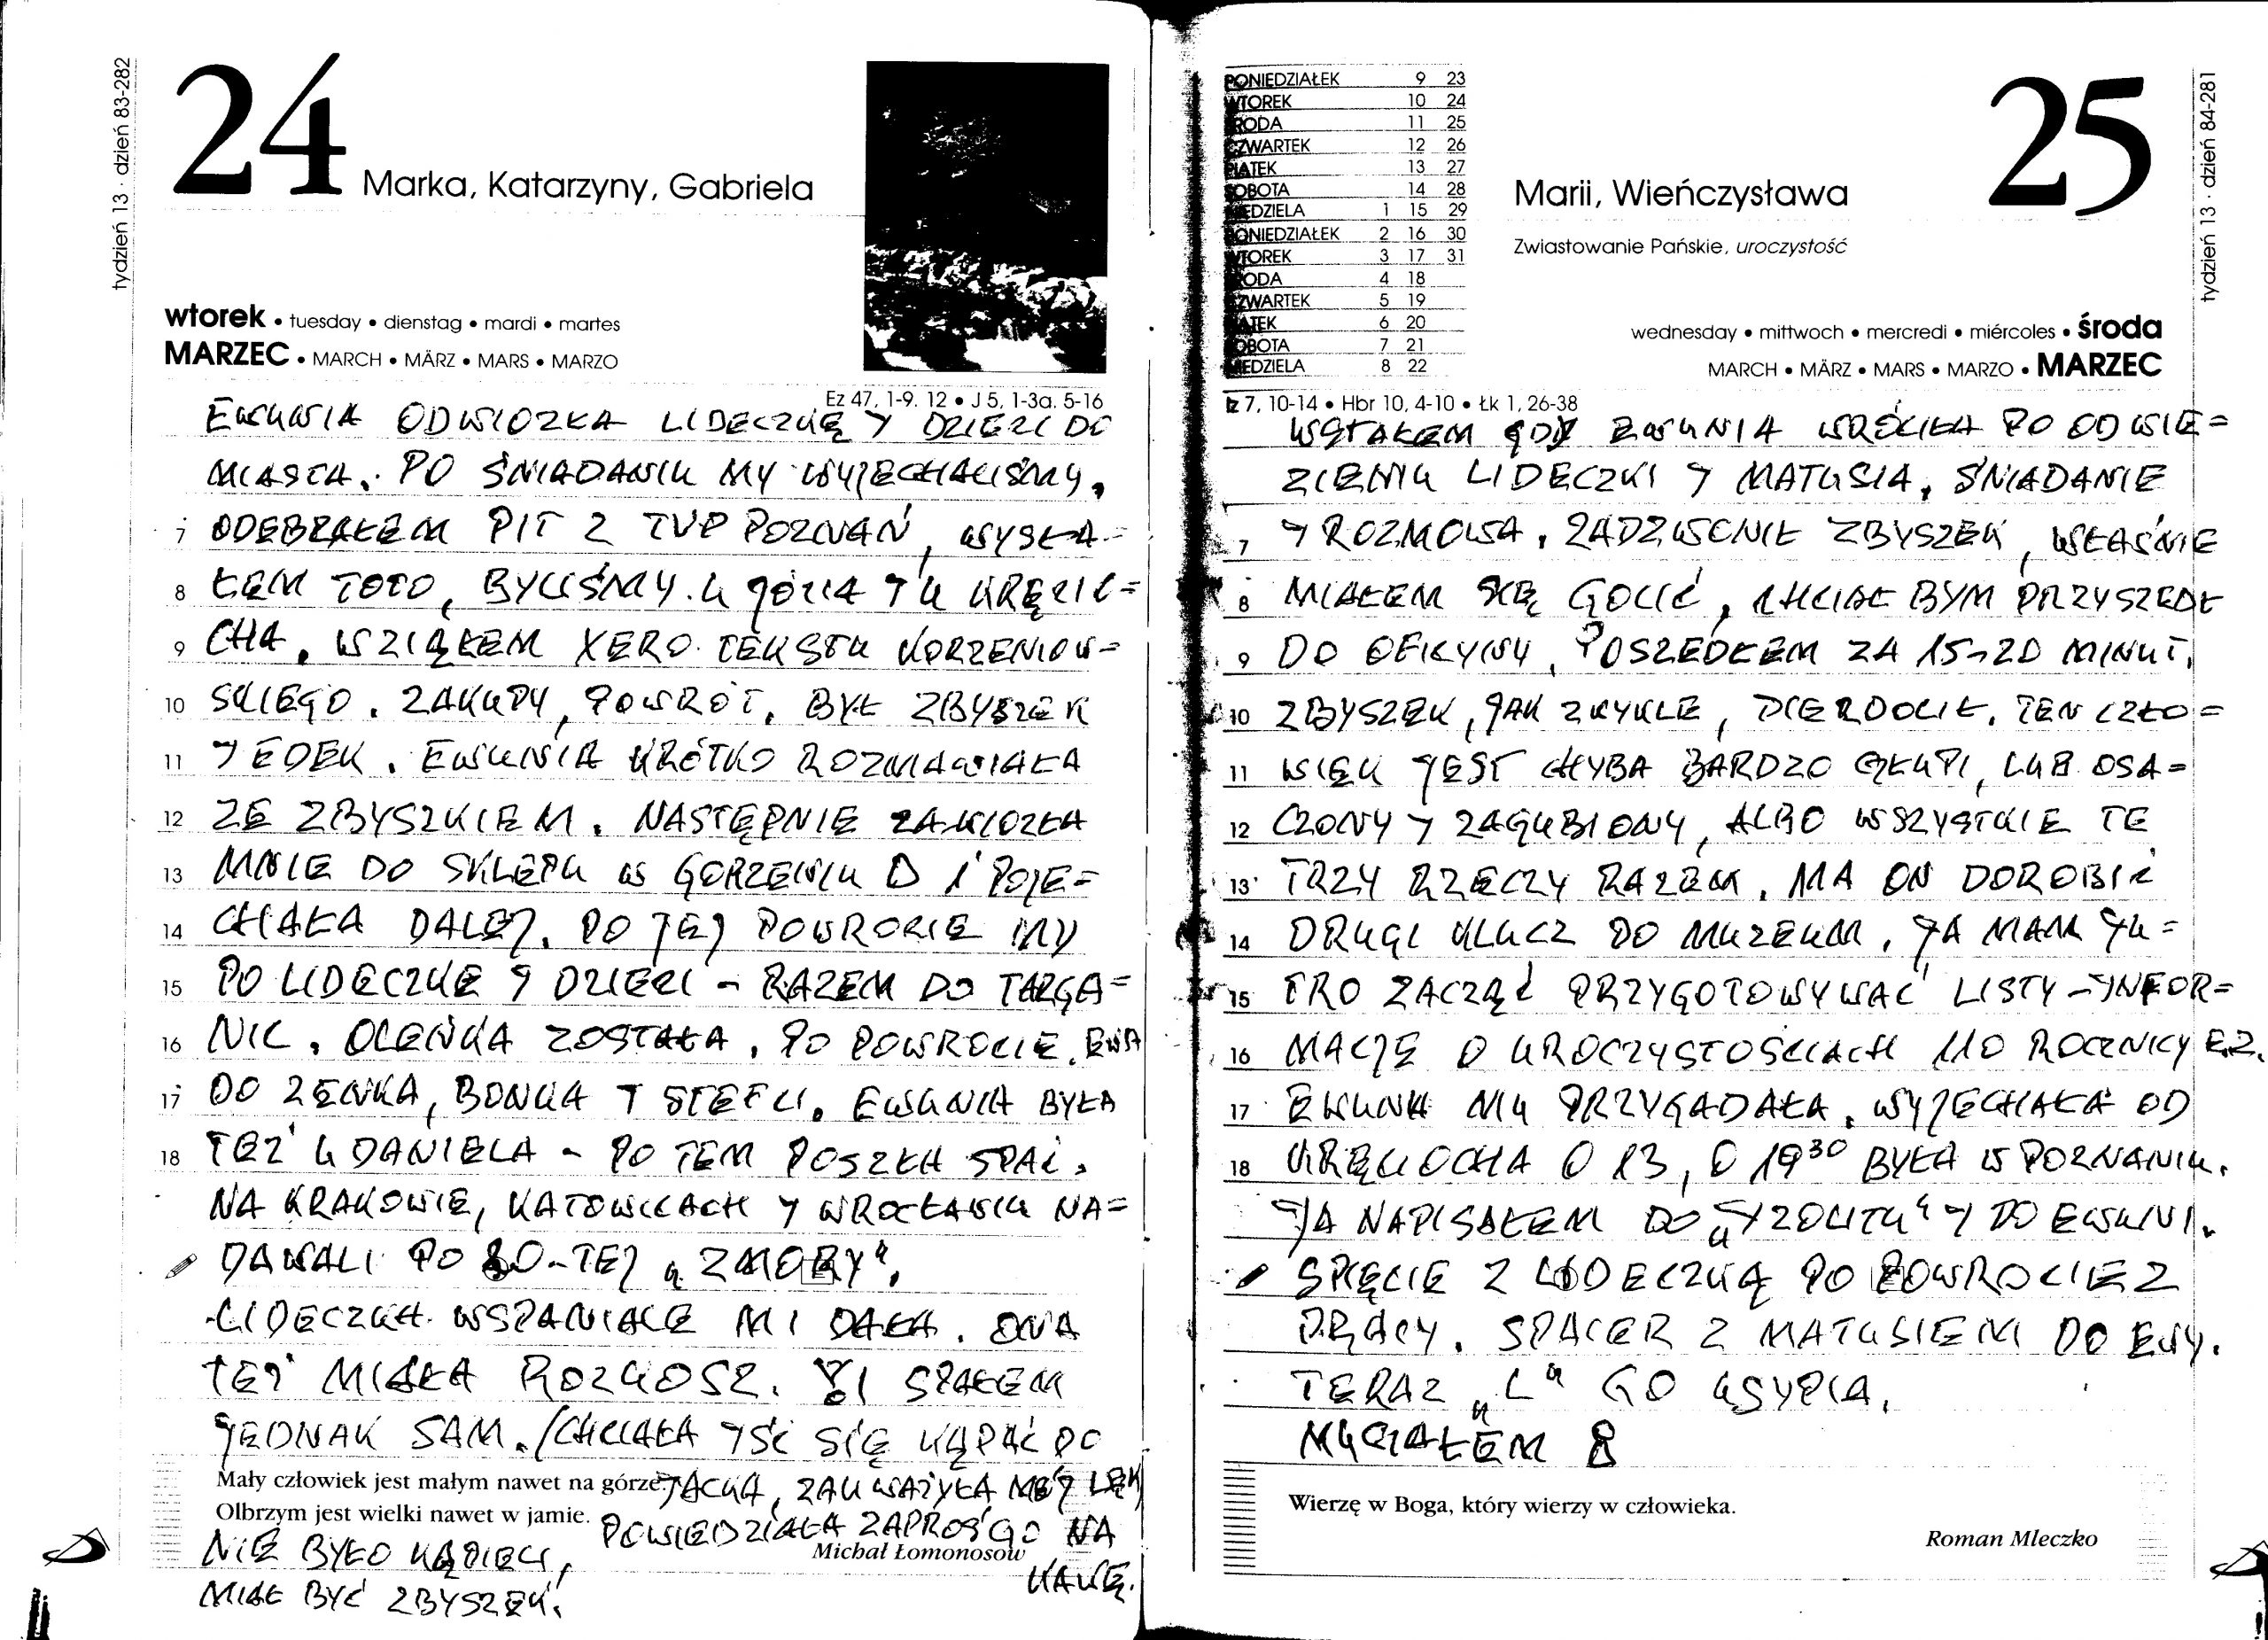 tydzień 13 · dzień 83-282
24
Marka, Katarzyny, Gabriela
wtorek • tuesday • dienstag • mardi • martes
MARZEC • MARCH • MÄRZ • MARS • MARZO
Ez 47, 1-9. 12 • J 5, 1-3a. 5-16
EWUNIA ODWIOZŁA LIDECZKĘ I DZIECI DO
MIASTA. PO ŚNIADANIU MY WYJECHALIŚMY,
7 ODEBRAŁEM PIT Z TVP POZNAŃ, WYSŁA-
8 ŁEM TOTO, BYLIŚMY U I U KRĘCIC=
9 CHA. WZIĄŁEM XERO TEKSTU KORZENIOW=
10 SKIEGO. ZAKUPY, POWRÓT. BYŁ ZBYSZEK
11 I EDEK. EWUNIA KRÓTKO ROZMAWIAŁA
12 ZE ZBYSZKIEM. NASTĘPNIE ZAWIOZŁA
13 MNIE DO SKLEPU W GORZEWIU I POJE=
14 CHAŁA DALEJ. PO JEJ POWROCIE MY
15 PO LIDECZKĘ I DZIECI - RAZEM DO TARGA=
16 NIC. OLEŃKA ZOSTAŁA. PO POWROCIE EWA
17 DO ZENKA, BONKA I STEFCI. EWUNIA BYŁA
18 TEŻ U DANIELA - PO TEM POSZŁA SPAĆ.
NA KRAKOWIE, KATOWICACH I WROCŁAWIU NA=
DAWALI PO -TEJ „ZMORY".
LIDECZKA WSPANIALE MI DAŁA. ONA
TEŻ MIAŁA ROZKOSZ. SPAŁEM
JEDNAK SAM. /CHCIAŁA IŚĆ SIĘ KĄPAĆ DO
Mały człowiek jest małym nawet na górze. JACKA, ZAUWAŻYŁA MÓJ LĘK
Olbrzym jest wielki nawet w jamie. POWIEDZIAŁA ZAPROŚ GO NA
Michał Łomonosow
KAWĘ.
NIE BYŁO KĄPIELI,
MIAŁ BYĆ ZBYSZEK.
PONIEDZIAŁEK 9 23
WTOREK 10 24
ŚRODA 11 25
CZWARTEK 12 26
PIĄTEK 13 27
SOBOTA 14 28
NIEDZIELA 1 15 29
PONIEDZIAŁEK 2 16 30
WTOREK 3 17 31
ŚRODA 4 18
CZWARTEK 5 19
PIĄTEK 6 20
SOBOTA 7 21
NIEDZIELA 8 22
Marii, Wieńczysława
Zwiastowanie Pańskie, uroczystość
25
tydzień 13 · dzień 84-281
wednesday • mittwoch • mercredi • miércoles • środa
MARCH • MÄRZ • MARS • MARZO • MARZEC
Iz 7, 10-14 • Hbr 10, 4-10 • Łk 1, 26-38
WSTAŁEM GDY EWUNIA WRÓCIŁA PO ODWIE=
ZIENIU LIDECZKI I MATUSIA. ŚNIADANIE
7 I ROZMOWA. ZADZWONIŁ ZBYSZEK, WŁAŚNIE
8 MIAŁEM SIĘ GOLIĆ, CHCIAŁ BYM PRZYSZEDŁ
9 DO OFICYNY. POSZEDŁEM ZA 15-20 MINUT.
10 ZBYSZEK, JAK ZWYKLE, PIERDOLIŁ. TEN CZŁO=
11 WIEK JEST CHYBA BARDZO GŁUPI, LUB OSA=
12 CZONY I ZAGUBIONY, ALBO WSZYSTKIE TE
13 TRZY RZECZY RAZEM. MA ON DOROBIĆ
14 DRUGI KLUCZ DO MUZEUM. JA MAM JU=
15 TRO ZACZĄĆ PRZYGOTOWYWAĆ LISTY - INFOR=
16 MACJĘ O UROCZYSTOŚCIACH 110 ROCZNICY E.Z.
17 EWUNIA MU PRZYGADAŁA. WYJECHAŁA OD
18 KRĘCIOCHA O 13, O 19³⁰ BYŁA W POZNANIU.
JA NAPISAŁEM DO I DO EWUNI.
SPIĘCIE Z LIDECZKĄ PO POWROCIE Z
PRACY. SPACER Z MATUSIEM DO EWY.
TERAZ „L" GO USYPIA.
Wierzę w Boga, który wierzy w człowieka.
Roman Mleczko